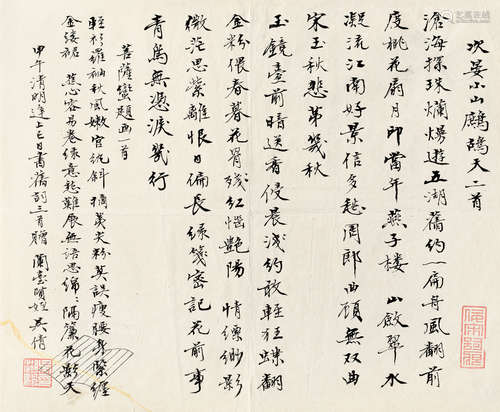 次晏小山鷓鴣天二首
滄海探珠爛熳遊五湖舊約一扁舟風翻前
度桃花扇月印當年燕子樓 山斂翠水
凝流江南好景信多愁周郎曲顧無双曲
宋玉秋悲第幾秋
玉鏡臺前暗送香侵晨淺約敢輕狂蝶翻
金粉偎春暮花骨殘紅惱艷陽 情縹緲影
微茫思縈離恨日偏長綠箋密記花前事
青鳥無憑淚幾行
菩薩蠻題画一首
輕衫羅袖秋風嫩宮紈斜掩美尖粉莫誤瘦腰身緊纏
金縷裙 蕉心容易卷緣意愁難展無語思綿綿隔簾花影天
甲午清明逢上巳日書舊詞三首贈 蘭臺賢姪 吳倩